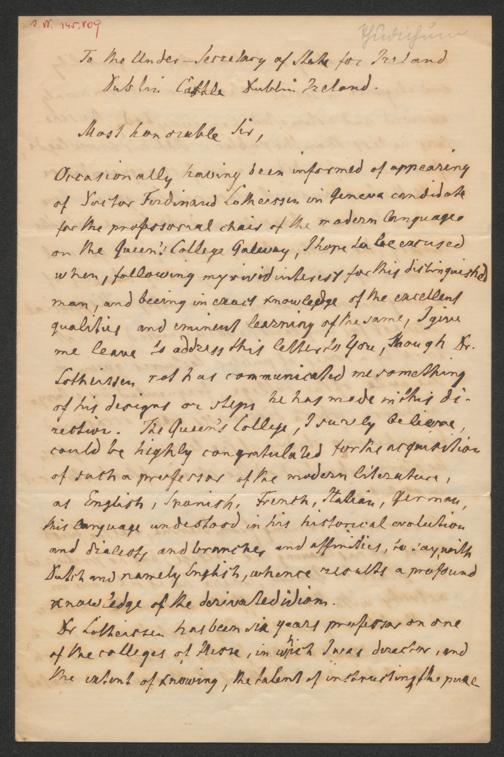 To the Under-Secretary of State for Ireland
Dublin Castle Dublin Ireland.
Most honorable Sir,
Occasionally having been informed of appearing
of Doctor Ferdinand Lotheissen in Geneva candidate
for the professorial chair of the modern languages
on the Queen's College Galway, I hope to be excused
when, following my vivid interest for this distinguished
man, and beeing in exact knowledge of the excellent
qualities and eminent learning of the same, I give
me leave to address this letter to You, though Dr.
Lotheissen not has communicated me something
of his designs or steps he has made in this di-
rection. The Queen's College, I surely believe,
could be highly congratulated for the acquisition
of such a professor of the modern literature,
as English, Spanish, French, Italian, German,
this language understood in his historical evolution
and dialects and branches and affinities, to say, with
Dutch and namely English, whence results a profound
knowledge of the derivated idiom.
Dr Lotheissen has been six years professor on one
of the colleges of Hesse, in which I was director, and
the extent of knowing, the talent of instructing, the pure